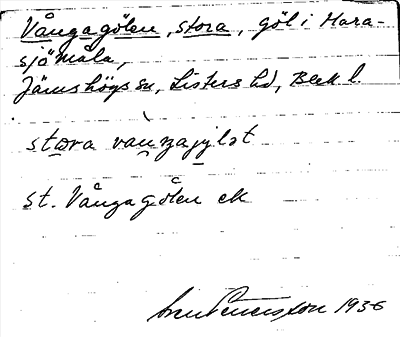 Vångagölen, stora, göl i Hara-
sjömåla,
Jämshögs sn, Listers hd, Blek. l.
stora vaŋgajylət
St. Vångagölen ek
1936